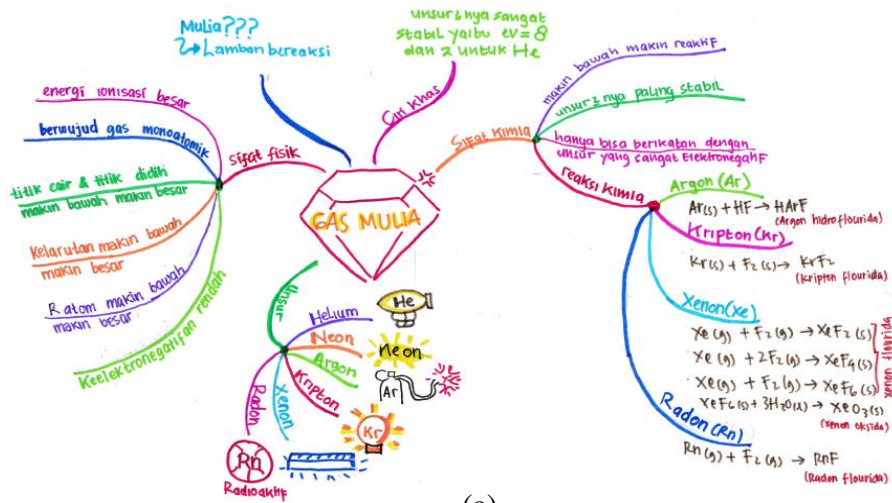 Mulia???
↳ Lamban bereaksi
unsur2nya sangat
stabil yaitu ev = 8
dan 2 untuk He
Ciri khas
GAS MULIA
sifat fisik
energi ionisasi besar
berwujud gas monoatomik
titik cair & titik didih
makin bawah makin besar
Kelarutan makin bawah
makin besar
R atom makin bawah
makin besar
Keelektronegatifan rendah
Sifat kimia
makin bawah makin reaktif
unsur2nya paling stabil
hanya bisa berikatan dengan
unsur yang sangat Elektronegatif
reaksi kimia
Argon (Ar)
Ar(s) + HF → HArF
(Argon hidroflourida)
Kripton (Kr)
Kr(s) + F2(s) → KrF2
(Kripton flourida)
Xenon (Xe)
Xe(g) + F2(g) → XeF2(s)
Xe(g) + 2F2(g) → XeF4(s)
Xe(g) + F2(g) → XeF6(s)
xenon flourida
XeF6(s) + 3H2O(l) → XeO3(s)
(Xenon oksida)
Radon (Rn)
Rn(g) + F2(g) → RnF
(Radon flourida)
Unsur
Helium
He
Neon
Neon
Argon
Ar
Kripton
Kr
Xenon
Radon
Rn
Radioaktif
(a)